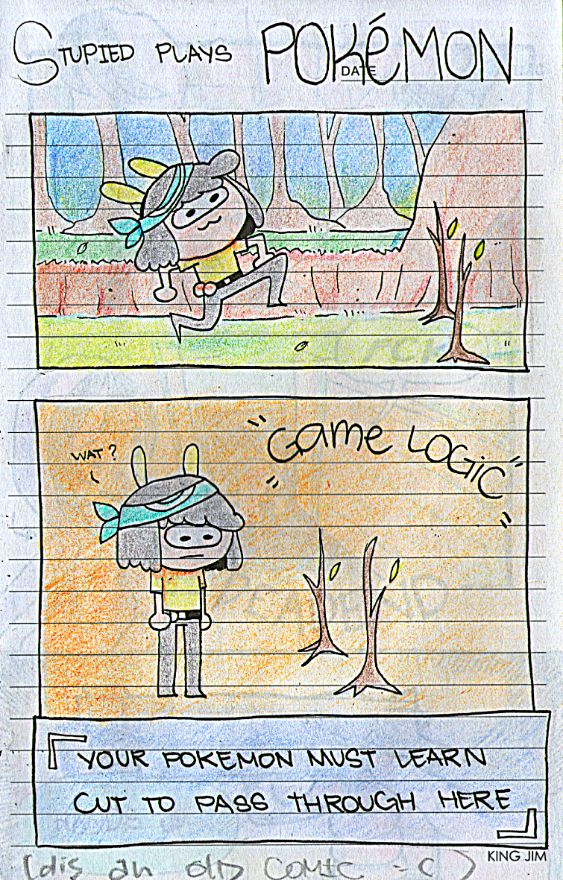 STUPIED PLAYS POKéMON
DATE
WAT?
"GAME LOGIC"
YOUR POKEMON MUST LEARN
CUT TO PASS THROUGH HERE
KING JIM
(dis an old comic -c)